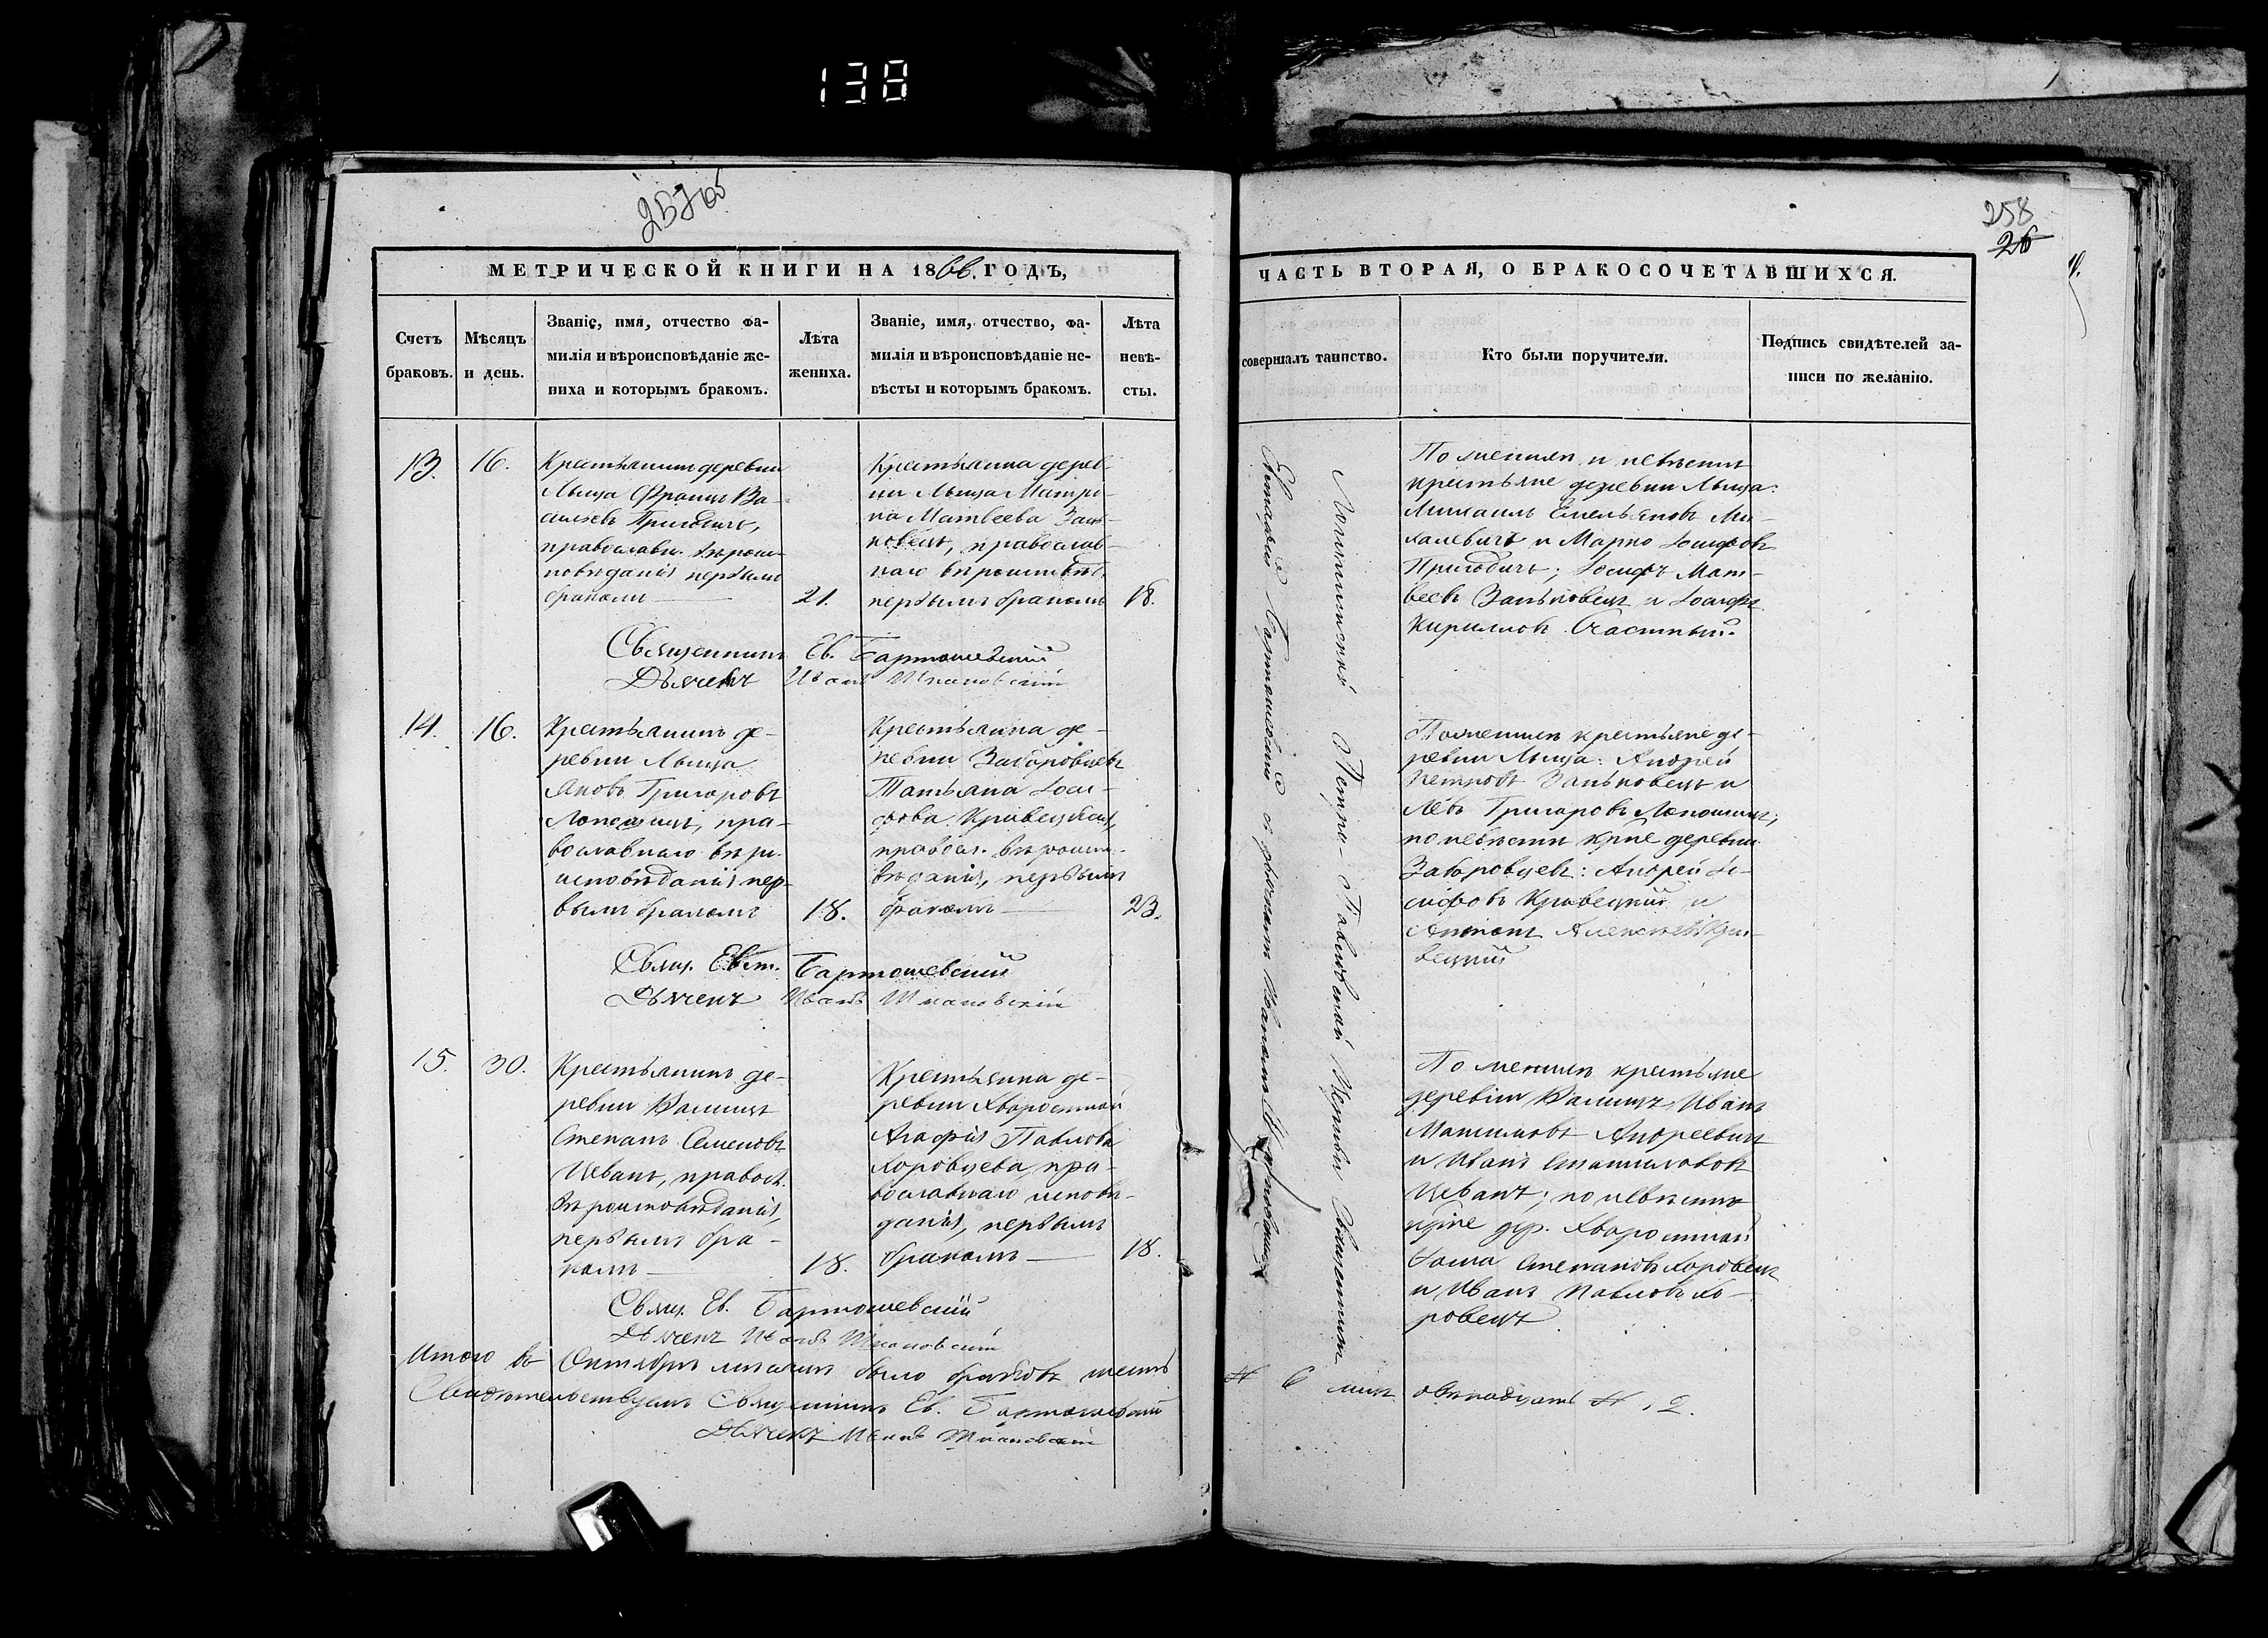 138
257об
258
26
МЕТРИЧЕСКОЙ КНИГИ НА 1866. ГОДЪ,
Счетъ браковъ.
Мѣсяцъ и день.
Званіе, имя, отчество фа-
милія и вѣроисповѣданіе же-
ниха и которымъ бракомъ.
Лѣта жениха.
Званіе, имя, отчество, фа-
милія и вѣроисповѣданіе не-
вѣсты и которымъ бракомъ.
Лѣта невѣ-
сты.
13.
16.
Крестьянинъ деревни
Лыща Францъ Ва-
сильевъ Приходичъ,
православн. вѣроис-
повѣданія первымъ
бракомъ
21.
Крестьянка дерев-
ни Лыща Матро-
на Матвеева Зань-
ковецъ, православ-
наго вѣроисповѣд.
первымъ бракомъ
18.
Священникъ Ев. Бартошевскій
Дьячекъ Иванъ
14.
16.
Крестьянинъ де-
ревни Лыща
Яковъ Григоровъ
пра-
вославнаго вѣро-
исповѣданія пер-
вымъ бракомъ
18.
Крестьянка де-
ревни Заборовцевъ
Татьяна Іоси-
фова Кривецкая,
правосл. вѣроиспо-
вѣданія, первымъ
бракомъ
23.
Свящ. Евст. Бартошевскій
Дьячекъ Иванъ
15.
30.
Крестьянинъ де-
ревни
Степанъ Семеновъ
Цеванъ, правосл.
вѣроисповѣданія,
первымъ бра-
комъ
18.
Крестьянка де-
ревни Хворостной
Агафія Павлова
Хоровцева, пра-
вославнаго исповѣ-
данія, первымъ
бракомъ
18.
Свящ. Ев. Бартошевскій
Дьячекъ Иванъ
Итого въ Октябрѣ мѣсяцѣ было браковъ шесть
Свидѣтельствуемъ Священникъ Ев. Бартошевскій
Дьячекъ Иванъ
ЧАСТЬ ВТОРАЯ, О БРАКОСОЧЕТАВШИХСЯ.
совершалъ таинство.
Кто были поручители.
Подпись свидѣтелей за-
писи по желанію.
Петро-Павловской Церкви Священникъ
Евстафій Бартошевскій съ дьячкомъ Иваномъ
По женихѣ и невѣстѣ
крестьяне деревни Лыща:
Михаилъ Емельяновъ Ми-
халевичъ и Марко Іосифовъ
Приходичъ; Іосифъ Мат-
веевъ Заньковецъ и Іосифъ
Кирилловъ Счастный.
По женихѣ крестьяне де-
ревни Лыща: Андрей
Петровъ Заньковецъ и
Левъ Григоровъ
по невѣстѣ крне деревни
Заборовцевъ: Андрей Іо-
сифовъ Кривецкій и
Антонъ Алексеевъ Кри-
вецкій
По женихѣ крестьяне
деревни Иванъ
Максимовъ Андреевичъ
и Иванъ
Цеванъ; по невѣстѣ
крне дер. Хворостной
Ѳома Степановъ Хоровецъ
и Иванъ Павловъ Хо-
ровецъ
# 6 двѣнадцать # 12.